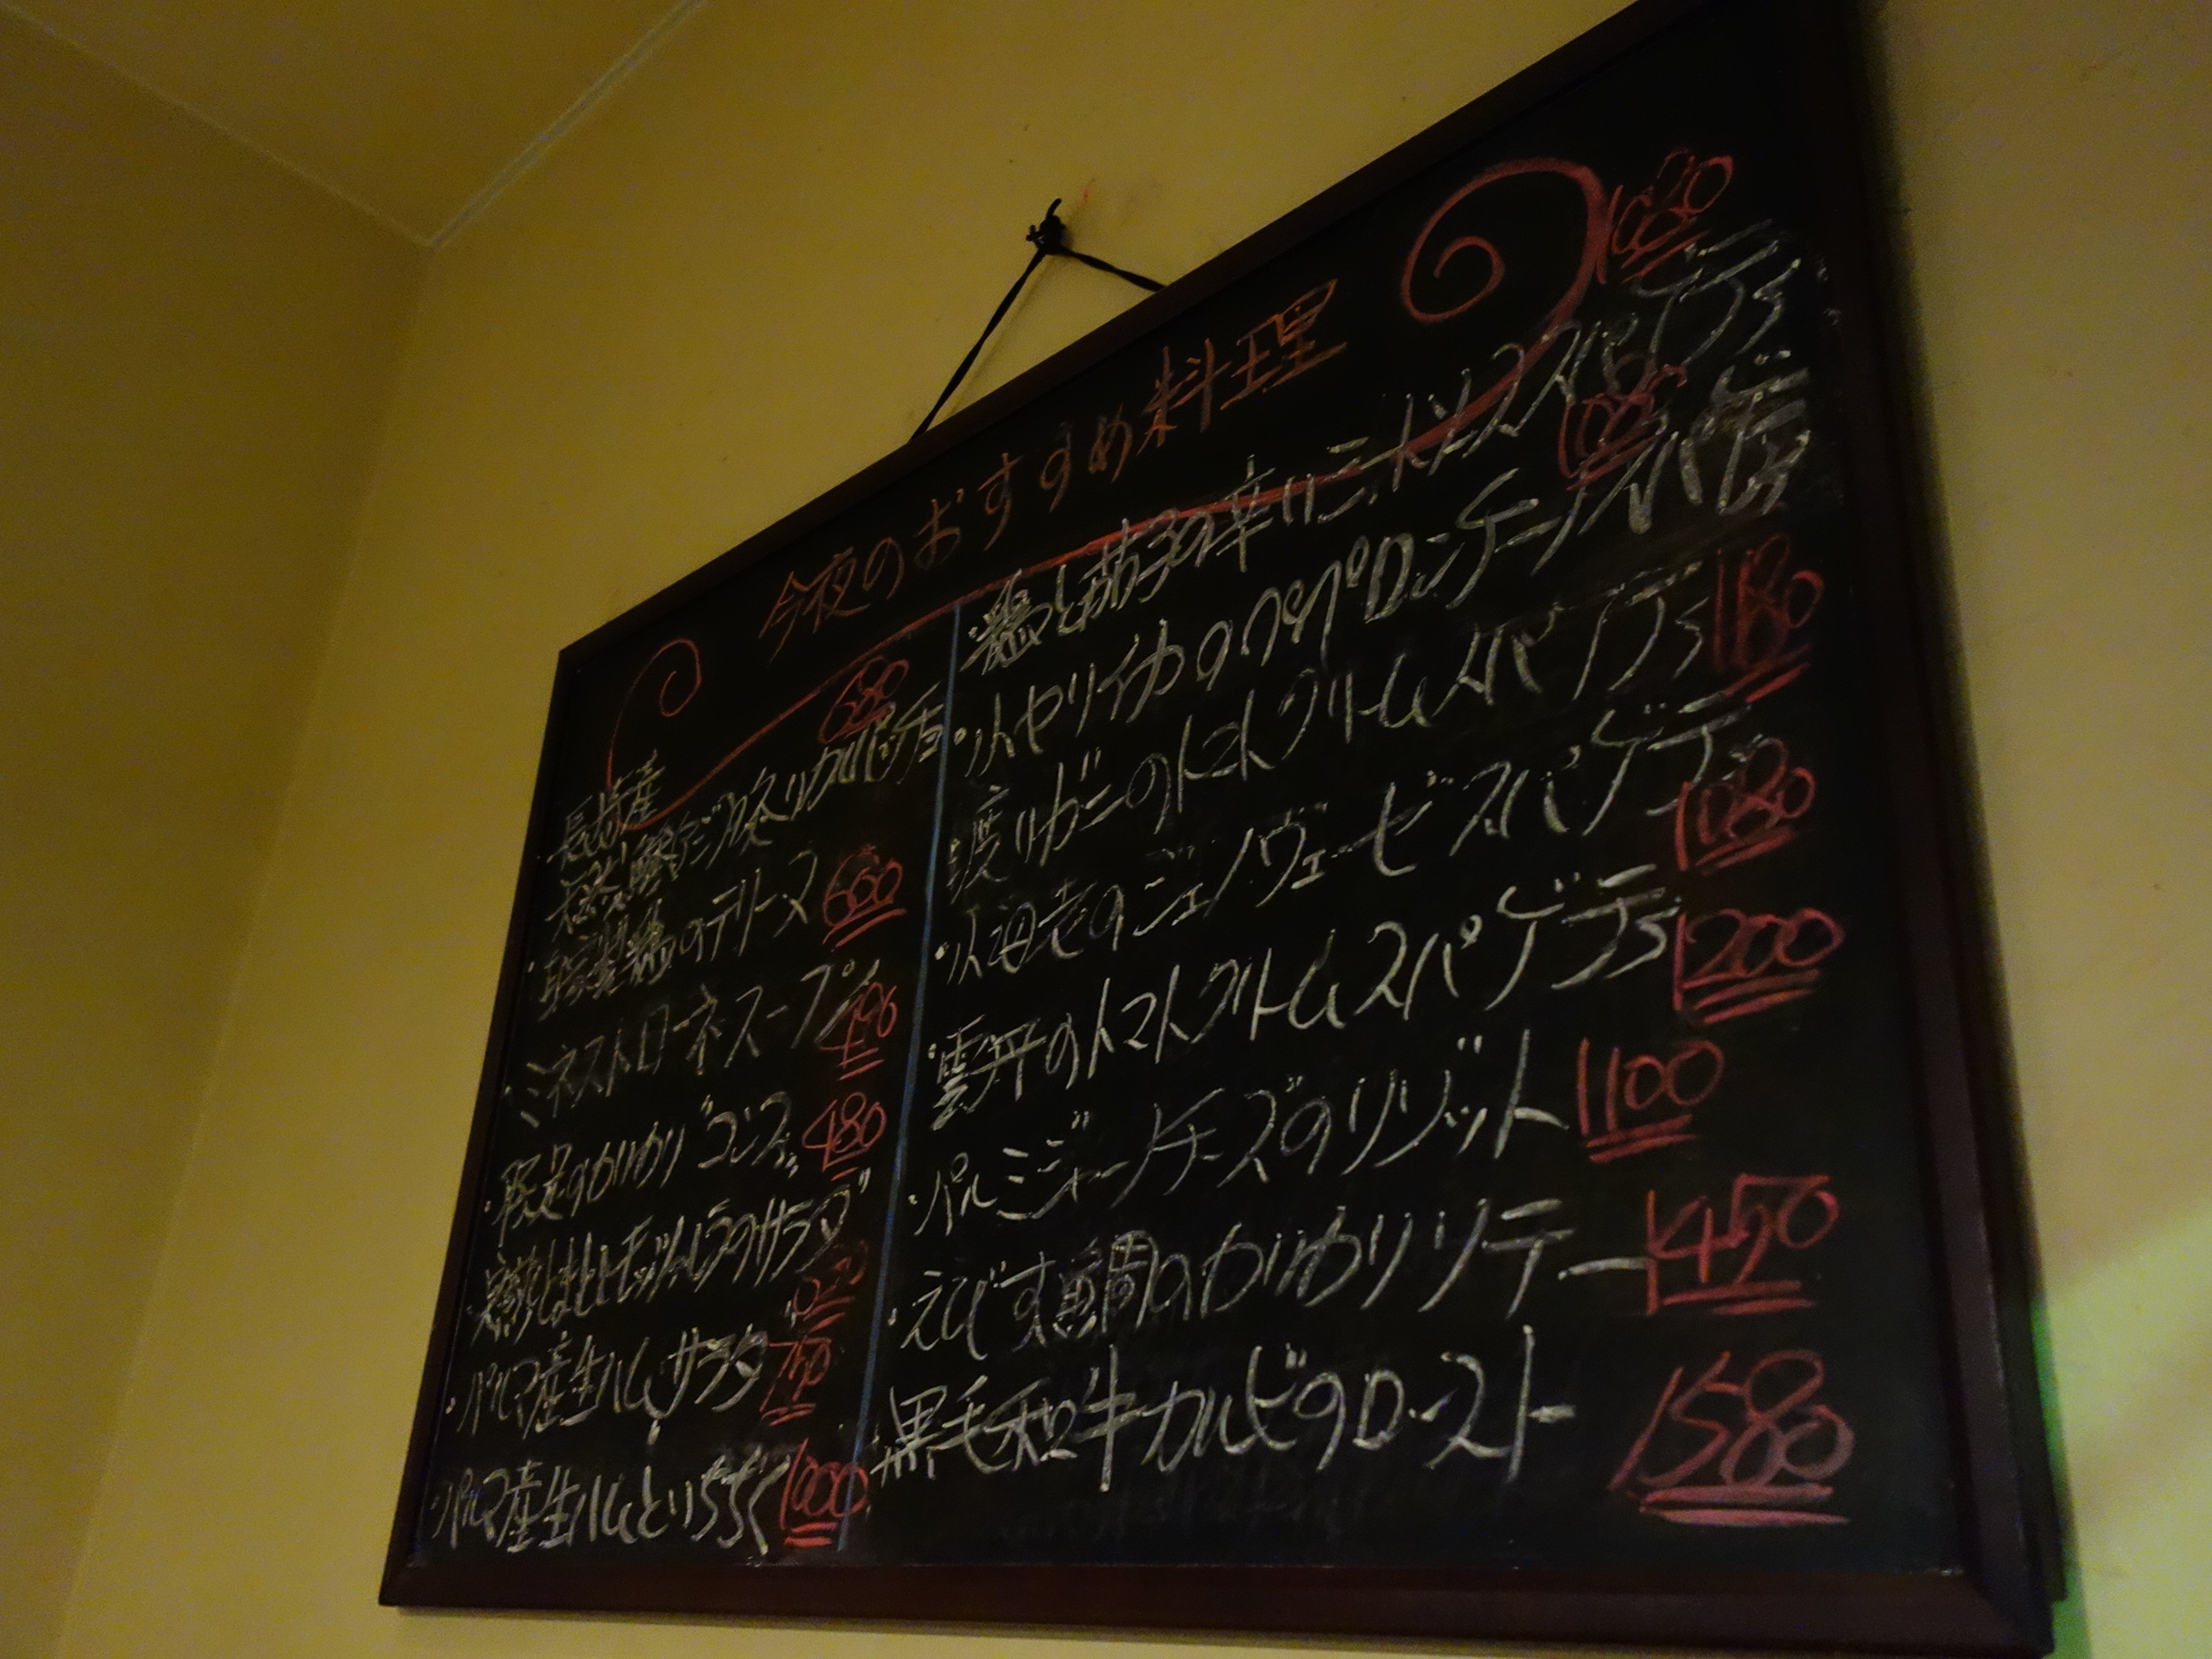 今夜のおすすめ料理
長崎産 680
天然鰤だつ炙りカルパッチョ
・豚
のテリーヌ 600
・ミネストローネスープ
・豚足のかりかり"コンフィ" 480
とモッツァレラのサラダ
・パルマ産生ハムサラダ 750
・パルマ産生ハムといちぢく 1000
1080
・鶏と茄子の辛いニンニクトマトソーススパゲティ
・小ヤリイカのペペロンチーノスパゲティ
渡りガニのトマトクリームスパゲティ 1180
・小海老のジェノヴェーゼスパゲティ 1080
・雲丹のトマトクリームスパゲティ 1200
・パルミジャーノチーズのリゾット 1100
・えびす鯛のかりかりソテー 1450
黒毛和牛カルビのロースト 1580